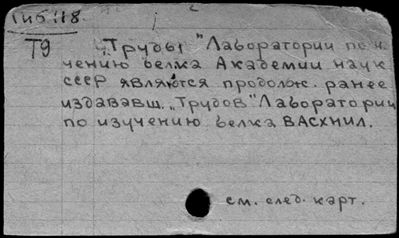 Т9
„Труды "Лаборатории по и-
чению белка Академии наук
СССР являются продолж. ранее
издававш. „Трудов" Лаборатории
по изучению белка ВАСХНИЛ.
см. след. карт.